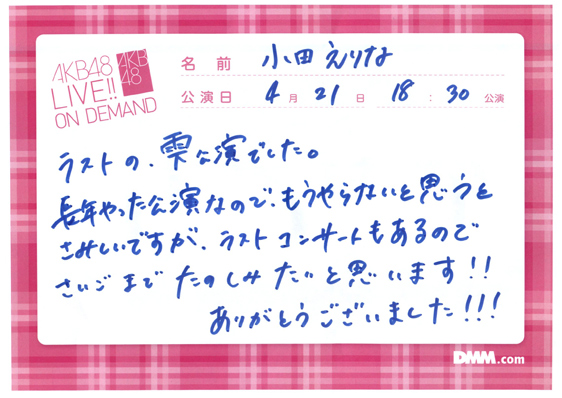 AKB48
LIVE!!
ON DEMAND
AKB
48
名前 小田えりな
公演日 4月21日 18:30公演
ラストの、雫公演でした。
長年やった公演なので、もうやらないと思うと
さみしいですが、ラストコンサートもあるので
さいごまでたのしみたいと思います!!
ありがとうございました!!!
DMM.com